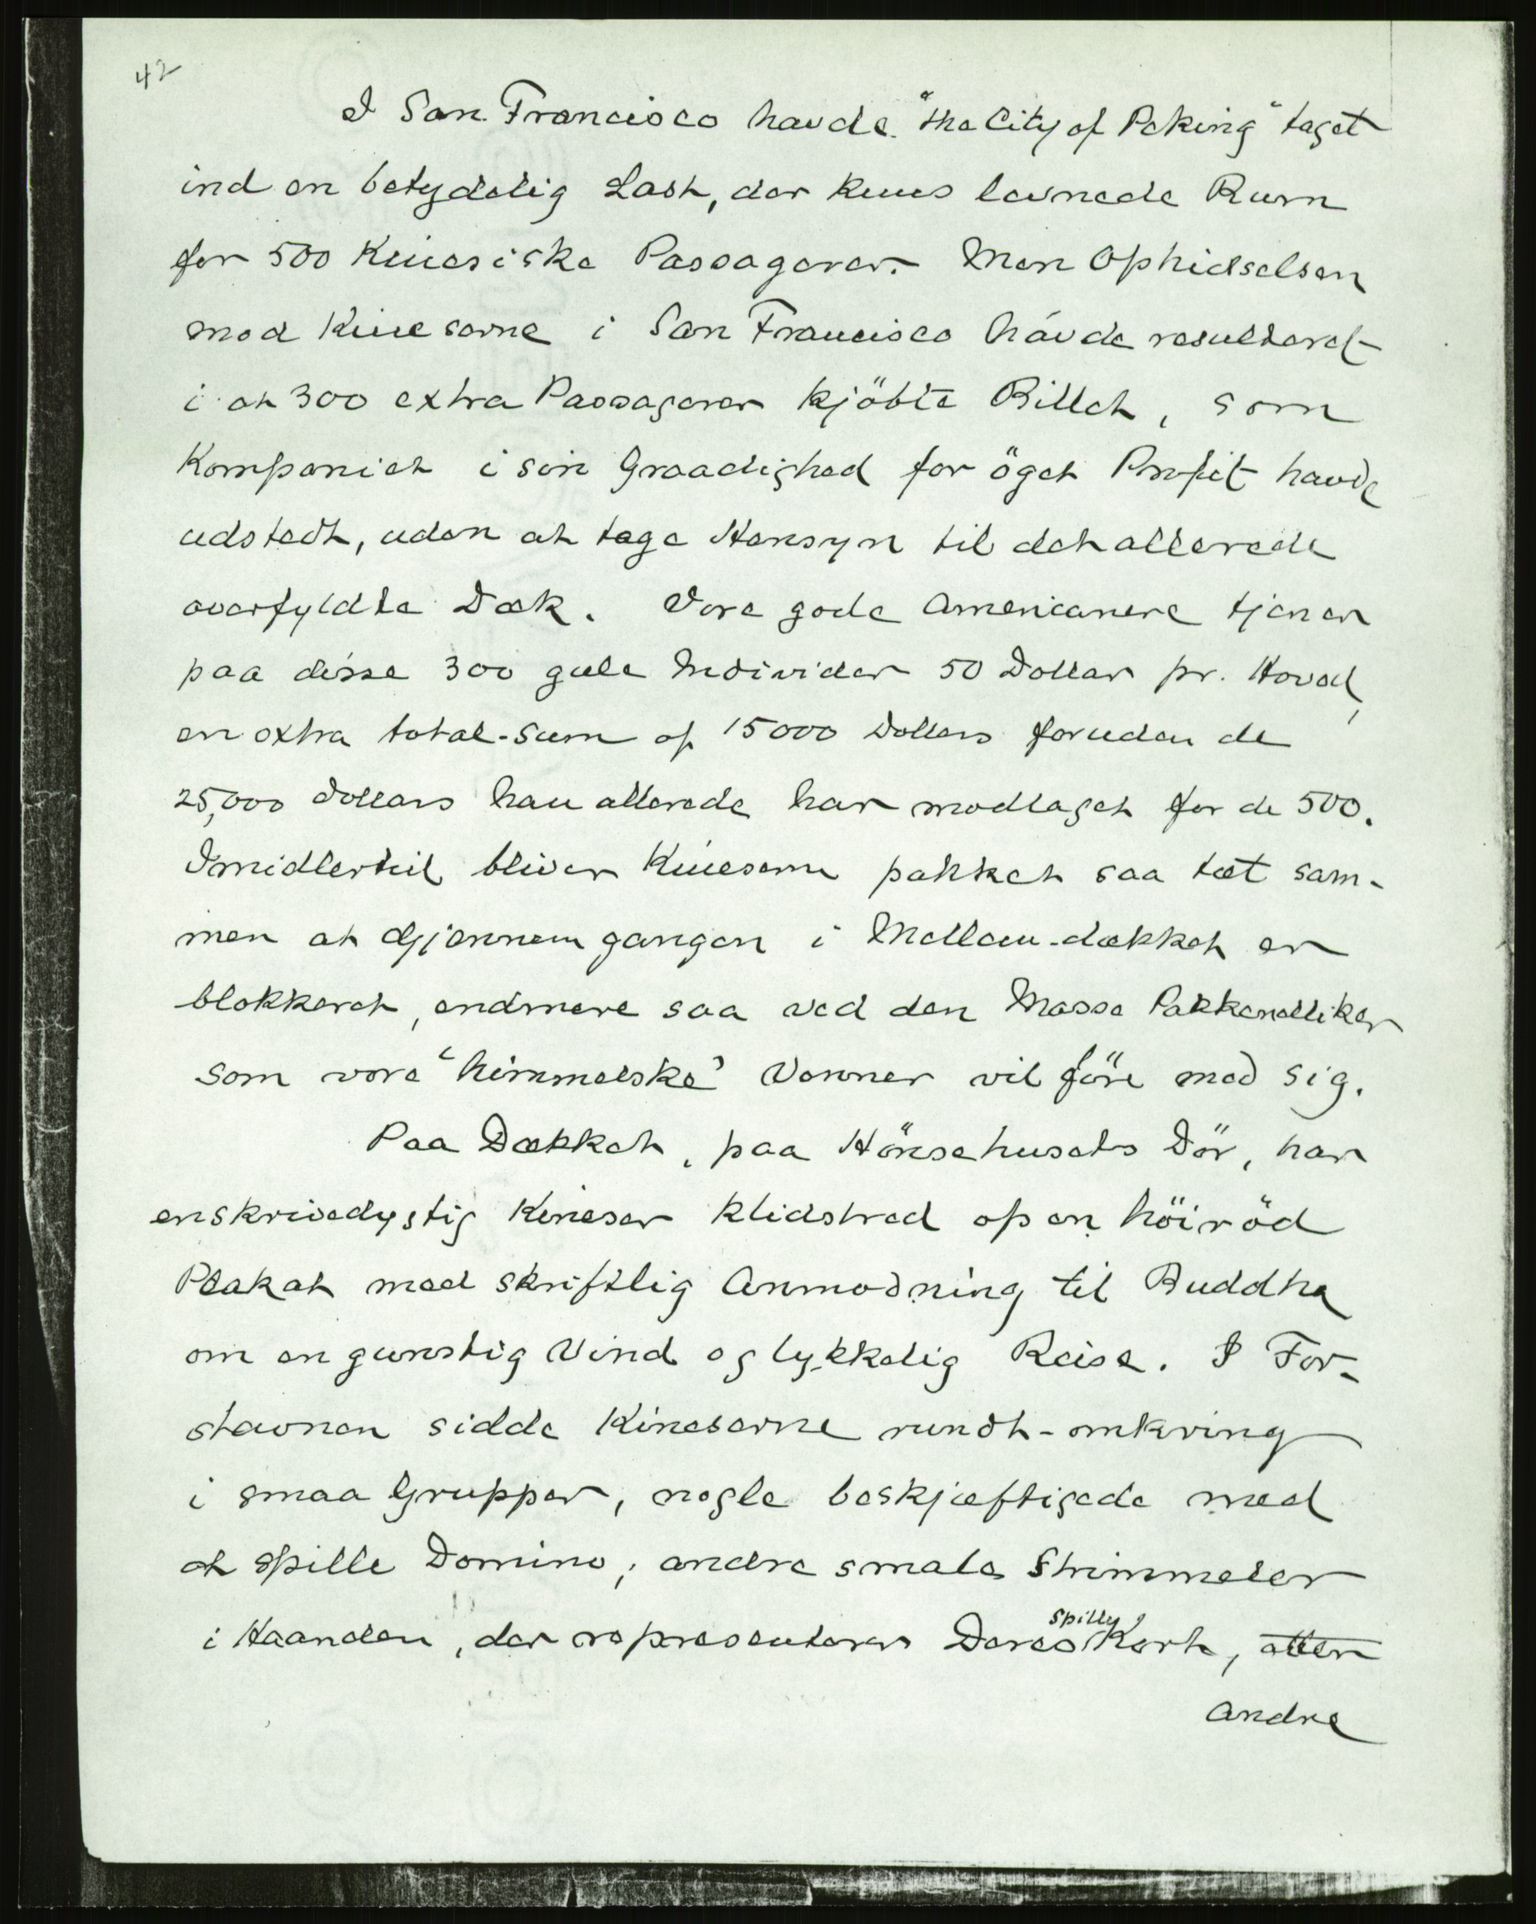 42
I San Francisco havde "the City of Peking" taget
ind en betydelig Last, der kuns levnede Rum
for 500 Kinesiske Passagerer. Men Ophidselsen
mod Kineserne i San Francisco havde resulteret
i at 300 extra Passagerer kjöbte Billet, som
Kompaniet i sin Graadighed for öget Profit havde
udstedt, uden at tage Hensyn til det allerede
overfyldte Dæk. Vore gode Americanere tjener
paa disse 300 gule Individer 50 Dollar pr. Hoved,
en extra total-Sum af 15000 Dollars foruden de
25,000 Dollars han allerede har modtaget for de 500.
Imidlertid bliver Kineserne pakket saa tæt sam-
men at Gjennemgangen i Mellem-dækket er
blokkeret, endmere saa ved den Masse Pakkenelliker
som vore "himmelske" Venner vil före med sig.
Paa Dækket, paa Hönsehusets Dör, har
en skrivedygtig Kineser klidstred op en höiröd
Plakat med skriftlig Anmodning til Buddha
om en gunstig Vind og lykkelig Reise. I For-
stavnen sidde Kineserne rundt-omkring
i smaa Grupper, nogle beskjæftigede med
at spille Domino; andre smale Strimmeler
i Haanden, der representerer Deres Spille Kort, atter
andre